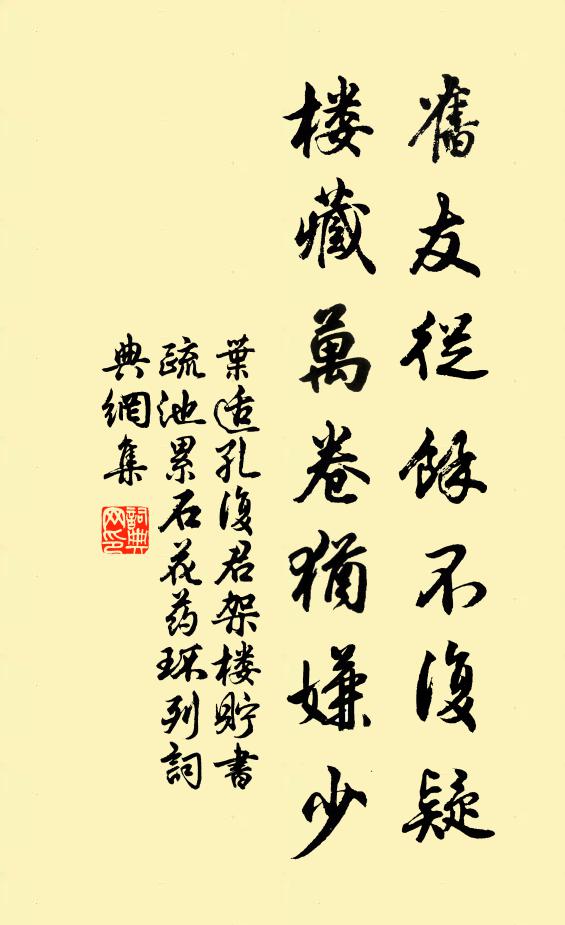 舊友從餘不復疑
楼藏萬卷猶嫌少
葉适孔復君架楼貯書
疏池累石花药环列詞
典網集
詞典
网印